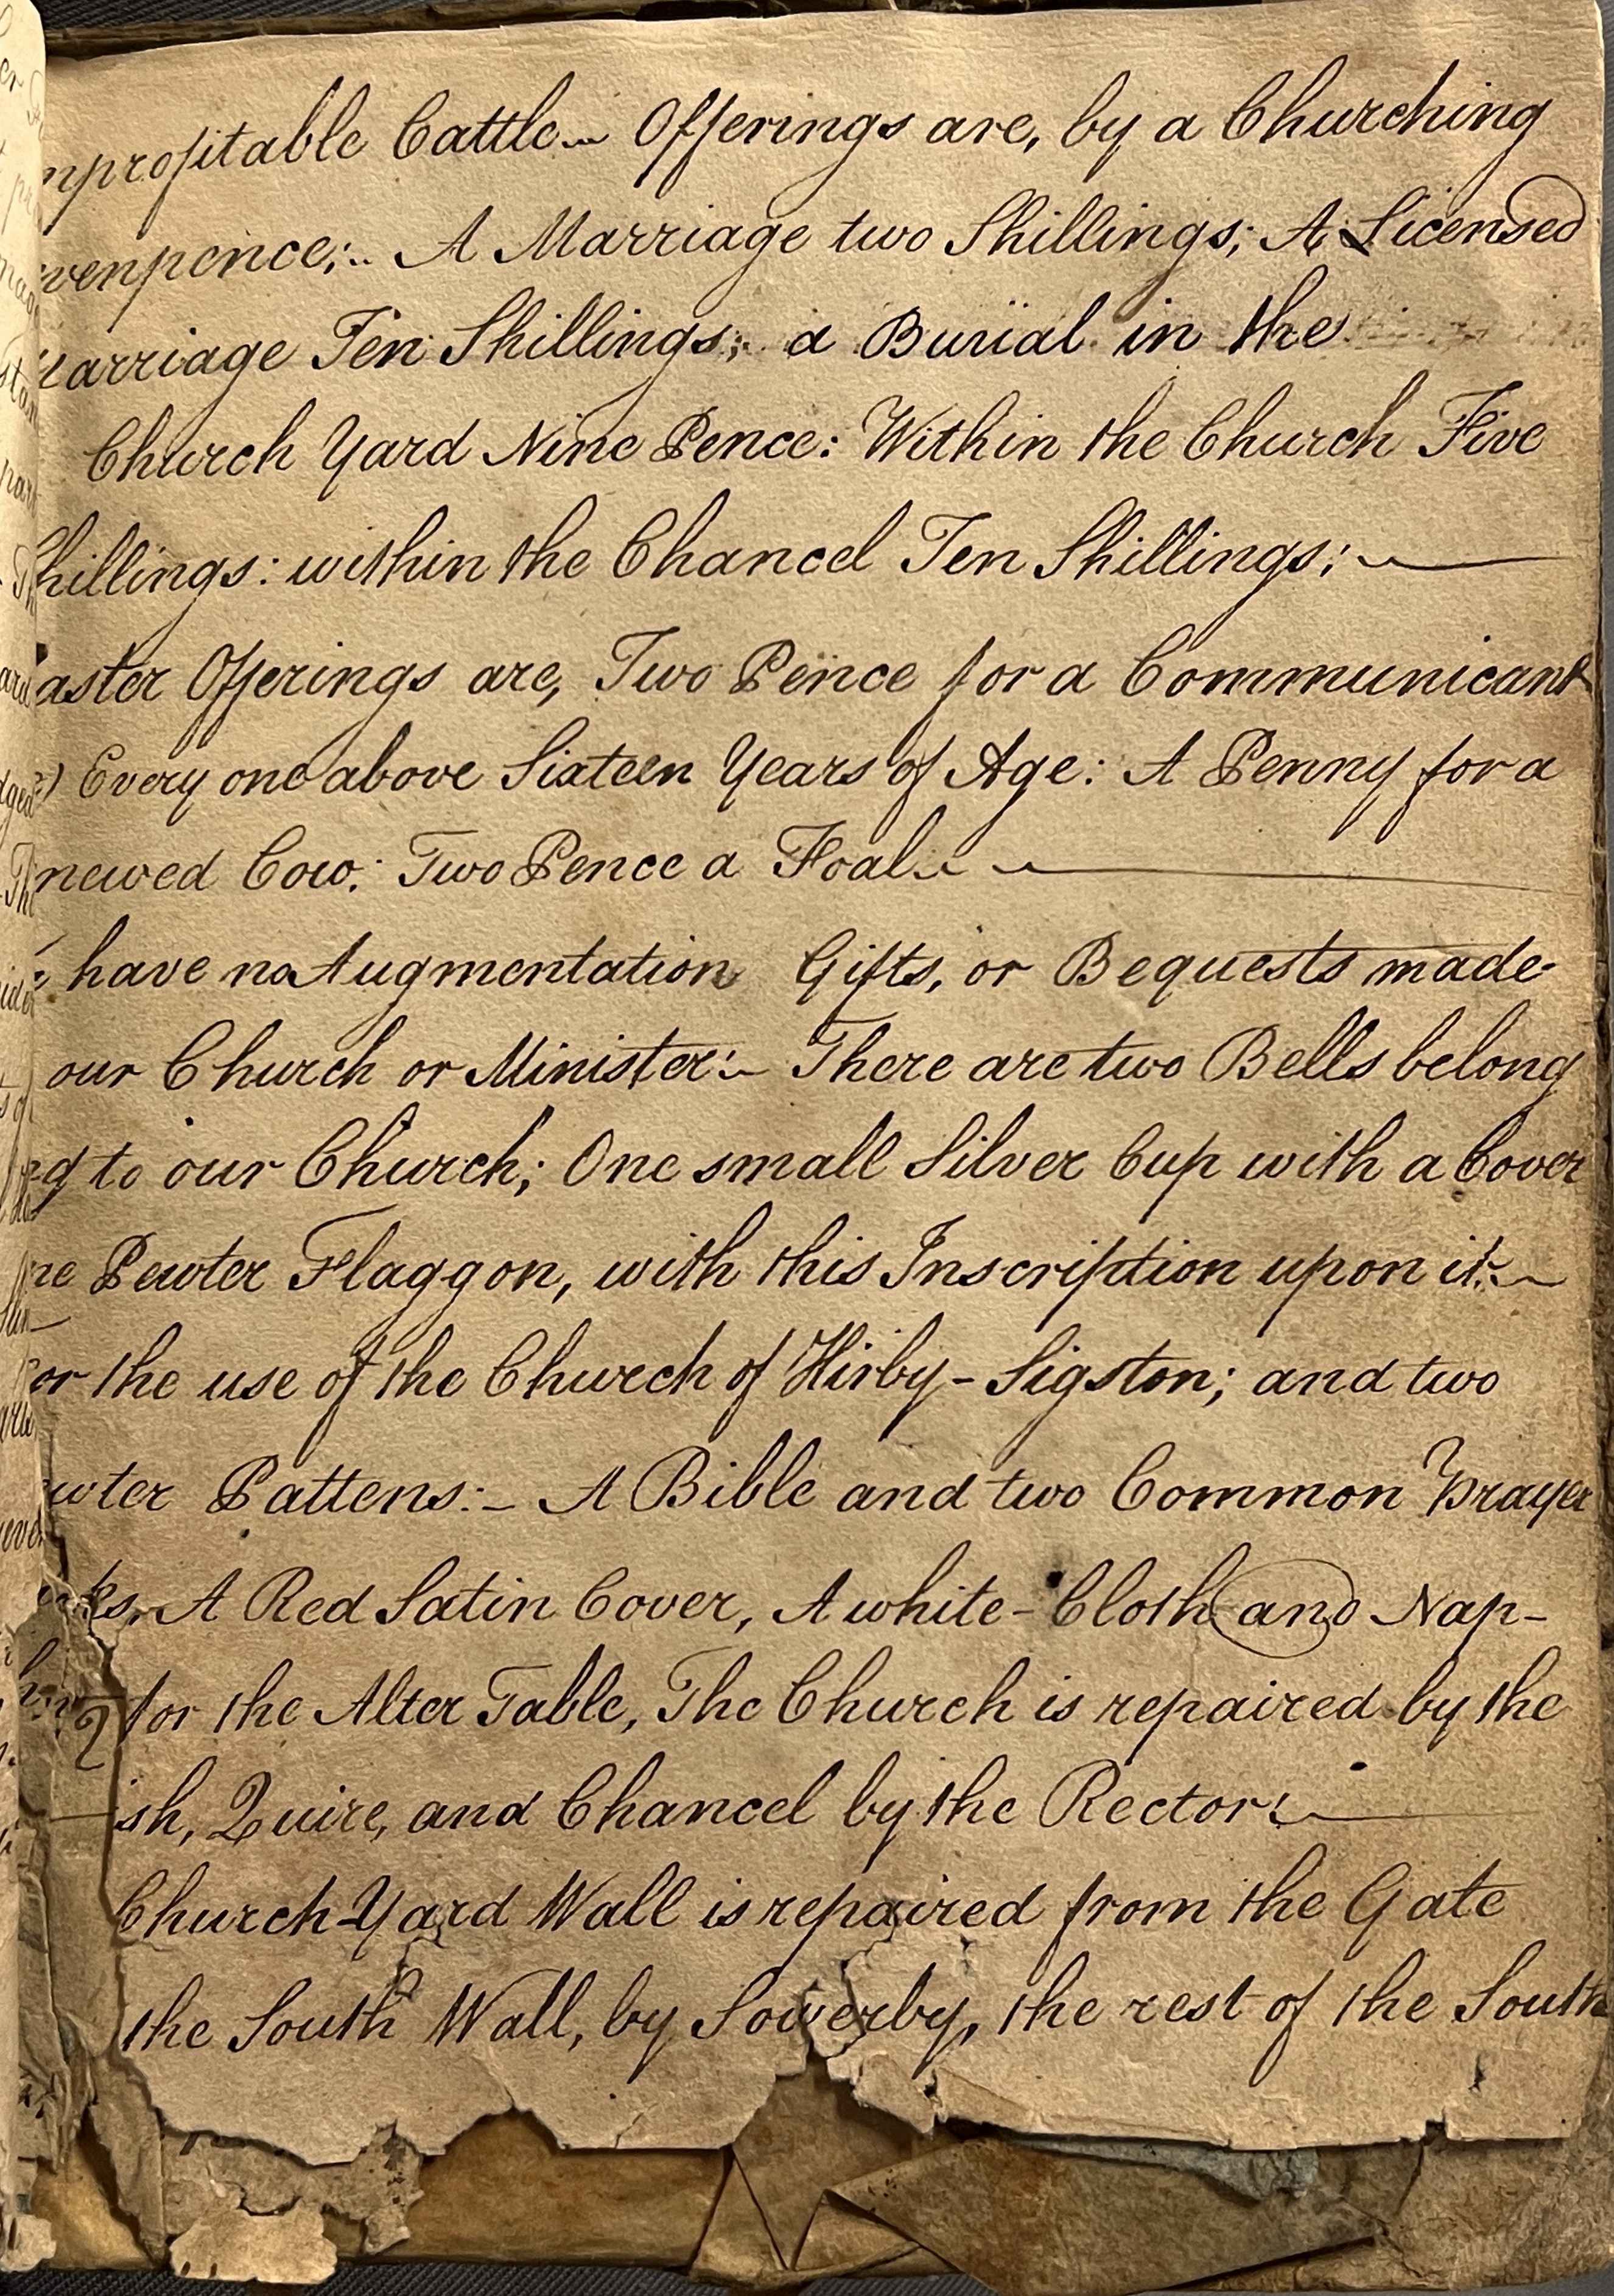 nprofitable Cattle Offerings are, by a Churching
venpence; A Marriage two Shillings; A Licensed
arriage Ten Shillings; a Burial in the
Church Yard Nine Pence: Within the Church Five
Shillings: within the Chancel Ten Shillings;
aster Offerings are, Two Pence for a Communicant
) Every one above Sixteen Years of Age: A Penny for a
newed Cow: Two Pence a Foal
have no Augmentation Gifts, or Bequests made
our Church or Minister:- There are two Bells belong
ed to our Church; One small Silver Cup with a Cover
ne Pewter Flaggon, with this Inscription upon it:
or the use of the Church of Kirby-Sigston; and two
ewter Pattens:- A Bible and two Common Prayer
ks, A Red Satin Cover, A white-Cloth and Nap-
for the Alter Table, The Church is repaired by the
ish, Quire, and Chancel by the Rector:
Church-Yard Wall is repaired from the Gate
the South Wall, by Sowerby, the rest of the South